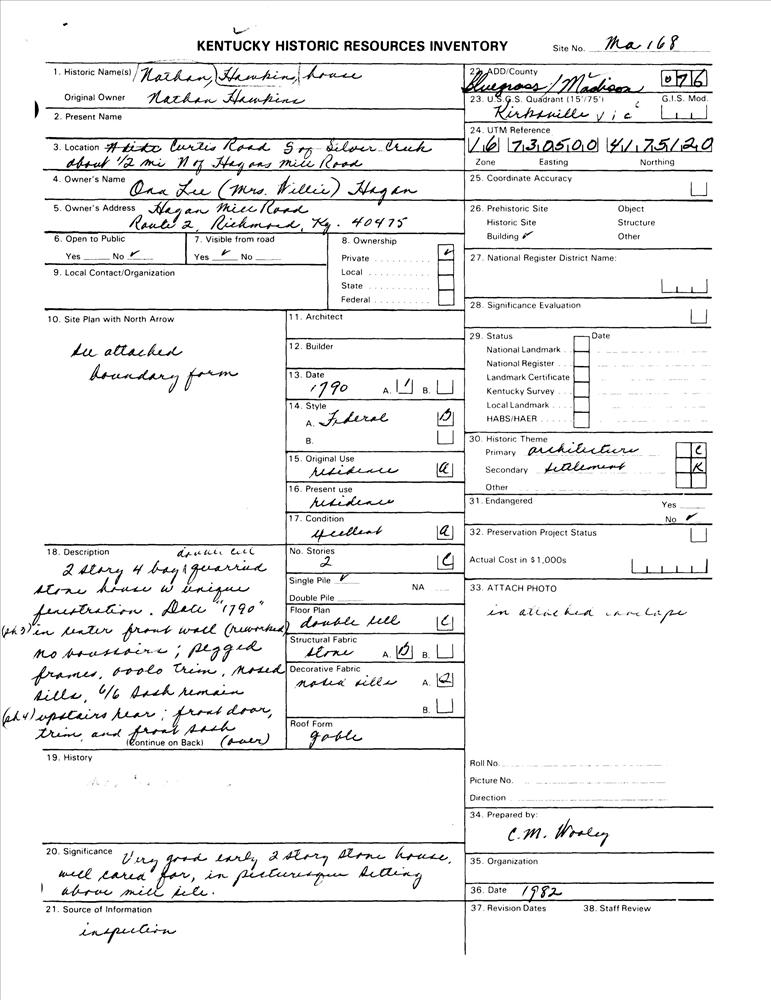 KENTUCKY HISTORIC RESOURCES INVENTORY
Site No. Ma 168
1. Historic Name(s) Nathan Hawkins house
Original Owner Nathan Hawkins
2. Present Name
3. Location Curtis Road S of Silver Creek
about 1/2 mi N of Hagans Mill Road
4. Owner's Name Ona Lee (Mrs. Willie) Hagan
5. Owner's Address Hagan Mill Road
Route 2, Richmond, Ky. 40475
6. Open to Public
Yes No ✓
7. Visible from road
Yes ✓ No
8. Ownership
Private ✓
Local
State
Federal
9. Local Contact/Organization
10. Site Plan with North Arrow
see attached
boundary form
11. Architect
12. Builder
13. Date
1790 A. 1 B.
14. Style
A. Federal B
B.
15. Original Use
residence a
16. Present use
residence
17. Condition
excellent a
18. Description double cell
2 story 4 bay quarried
stone house w unique
fenestration. Date "1790"
(ph 3) in center front wall (reworked)
no voussoirs; pegged
frames, ovolo trim, nosed
sills, 6/6 sash remain
(ph 4) upstairs rear; front door,
trim, and front sash
(Continue on Back) (over)
No. Stories
2 C
Single Pile ✓
NA
Double Pile
Floor Plan
double cell C
Structural Fabric
stone A. D B.
Decorative Fabric
nosed sills A. 2
B.
Roof Form
gable
19. History
20. Significance Very good early 2 story stone house,
well cared for, in picturesque setting
above mill site.
21. Source of Information
inspection
22. ADD/County
Bluegrass/Madison 076
23. U.S.G.S. Quadrant (15'/75') G.I.S. Mod.
Kirksville
24. UTM Reference
16 730500 4175120
Zone Easting Northing
25. Coordinate Accuracy
26. Prehistoric Site Object
Historic Site Structure
Building ✓ Other
27. National Register District Name:
28. Significance Evaluation
29. Status Date
National Landmark
National Register
Landmark Certificate
Kentucky Survey
Local Landmark
HABS/HAER
30. Historic Theme
Primary architecture C
Secondary settlement K
Other
31. Endangered Yes
No ✓
32. Preservation Project Status
Actual Cost in $1,000s
33. ATTACH PHOTO
in attached envelope
Roll No.
Picture No.
Direction
34. Prepared by:
C.M. Wooley
35. Organization
36. Date 1982
37. Revision Dates 38. Staff Review